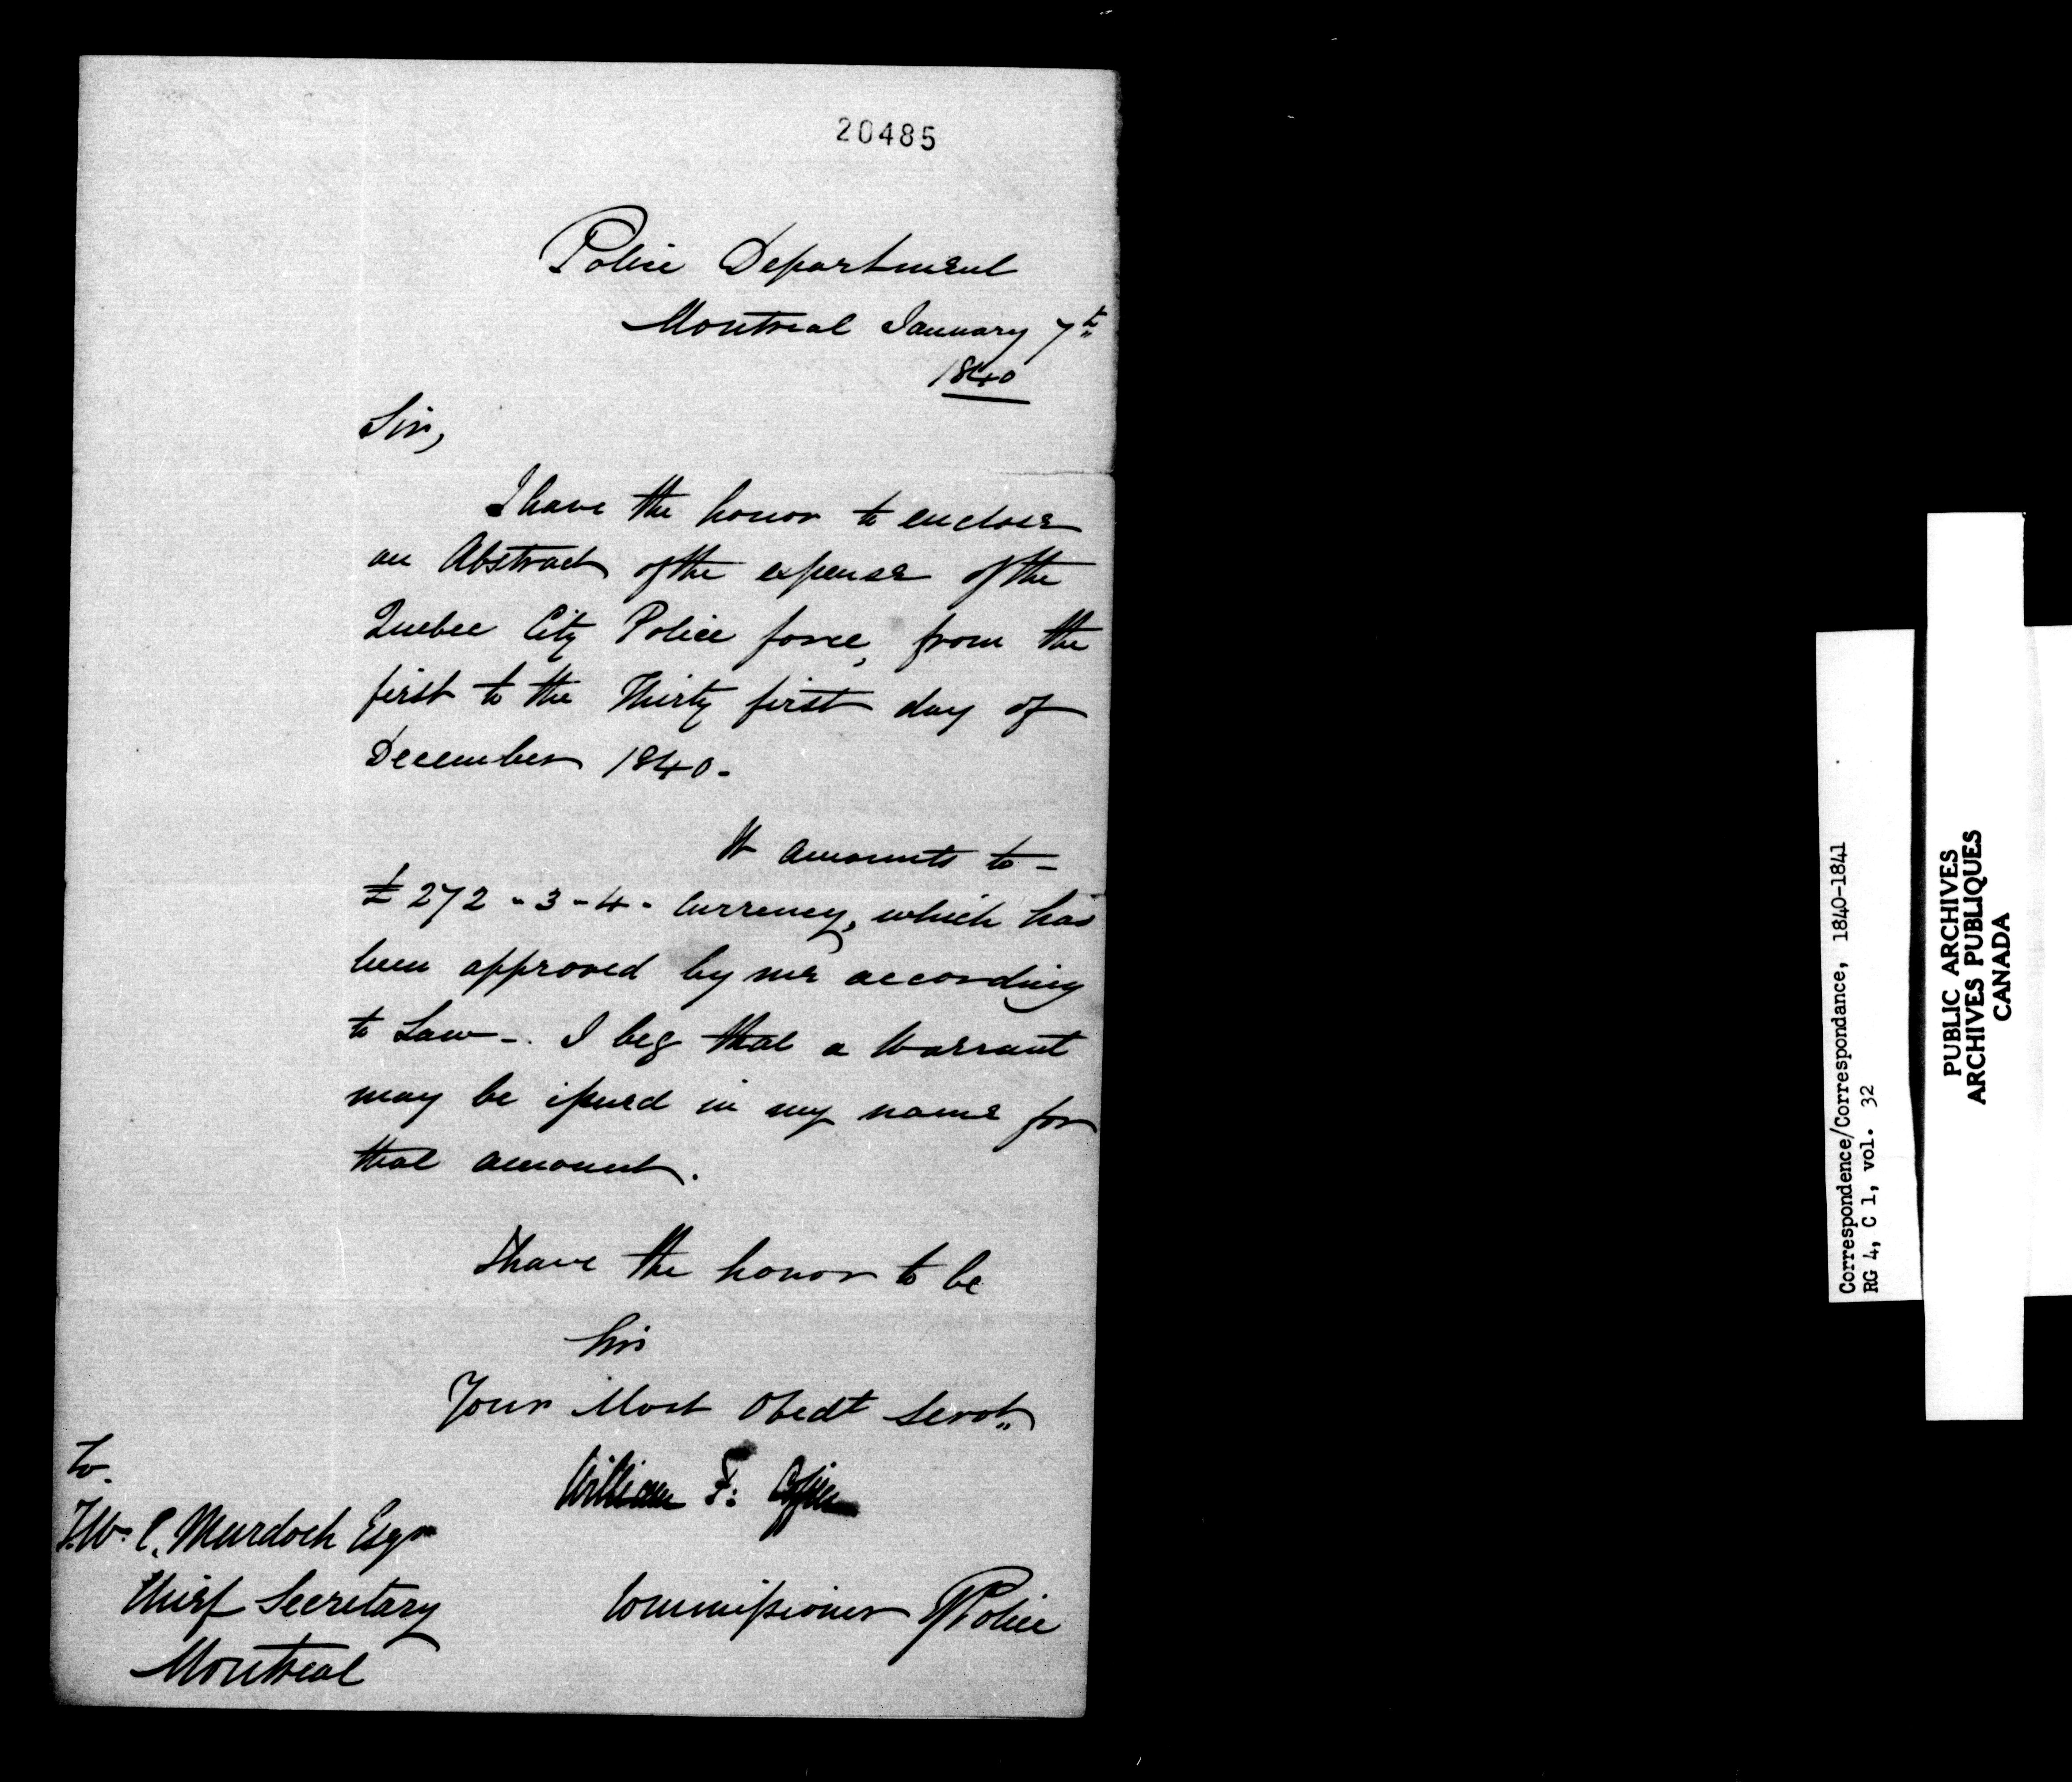 20485
Police Department
Montreal January 7th
1840
Sir,
I have the honor to enclose
an Abstract of the expense of the
Quebec City Police force, from the
first to the Thirty first day of
December 1840.
It amounts to =
£272-3-4. Currency, which has
been approved by me according
to Law-. I beg that a Warrant
may be issued in my name for
that amount.
I have the honor to be
Sir
Your Most Obedt Servt
William F: Coffin
Commissioner of Police
To
T.W. C. Murdoch Esqr
Chief Secretary
Montreal
Correspondence/Correspondance, 1840-1841
RG 4, C 1, vol. 32
PUBLIC ARCHIVES
ARCHIVES PUBLIQUES
CANADA